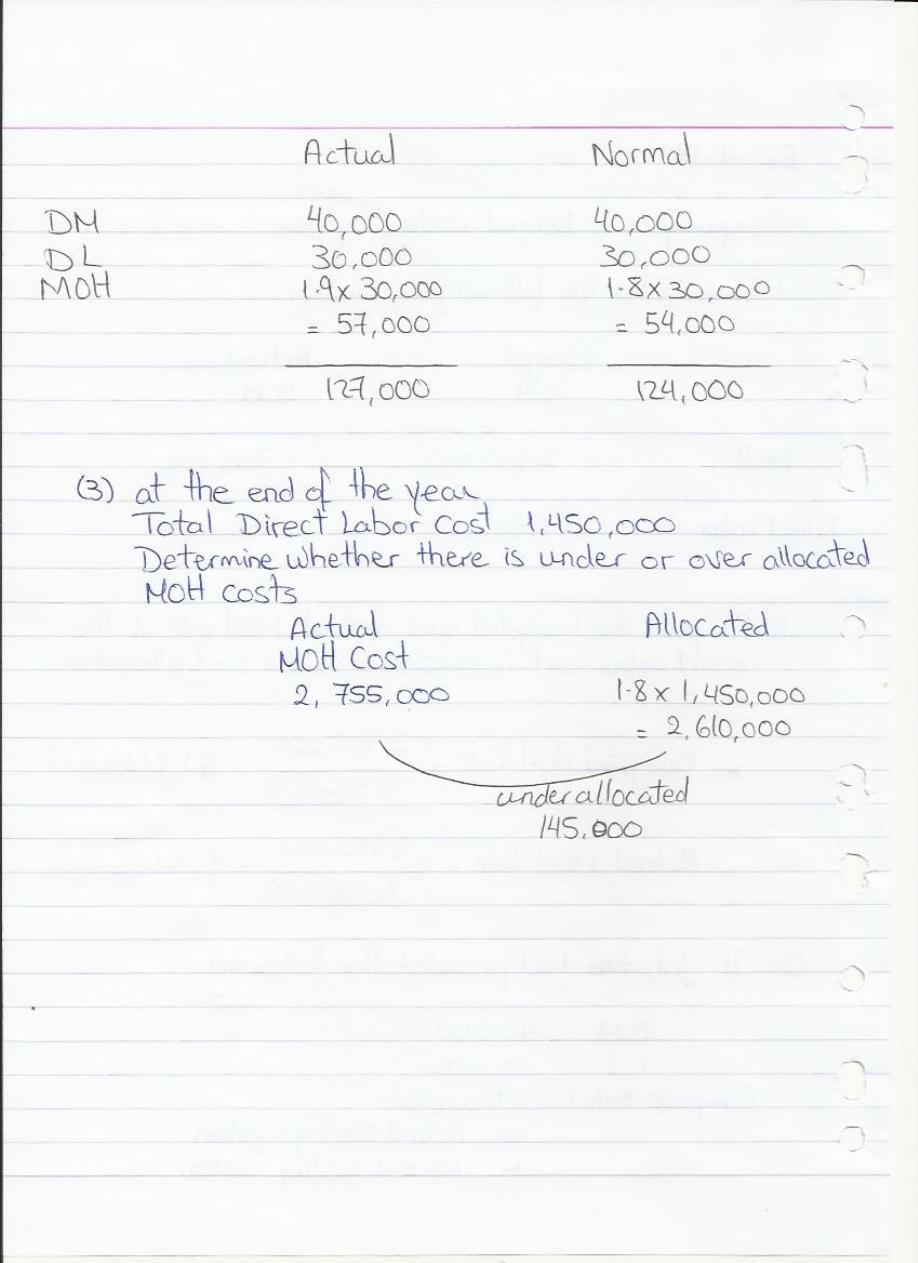 Actual Normal
DM 40,000 40,000
DL 30,000 30,000
MOH 1.9 x 30,000 1.8 x 30,000
= 57,000 = 54,000
127,000 124,000
(3) at the end of the year
Total Direct Labor Cost 1,450,000
Determine whether there is under or over allocated
MOH costs
Actual Allocated
MOH Cost
2,755,000 1.8 x 1,450,000
= 2,610,000
under allocated
145,000